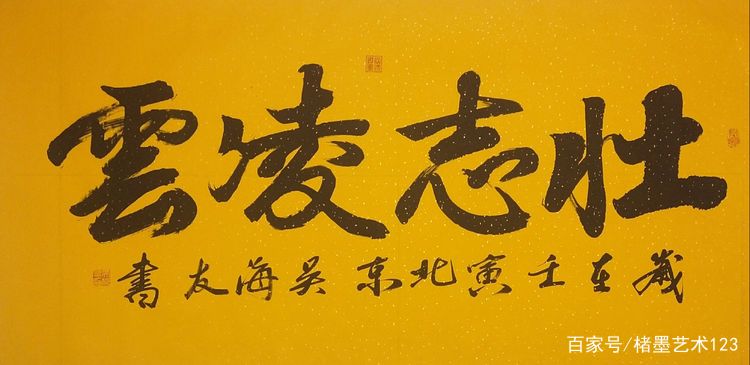 壮志凌雲
歲在壬寅北京吴海友書
百家号/楮墨艺术123